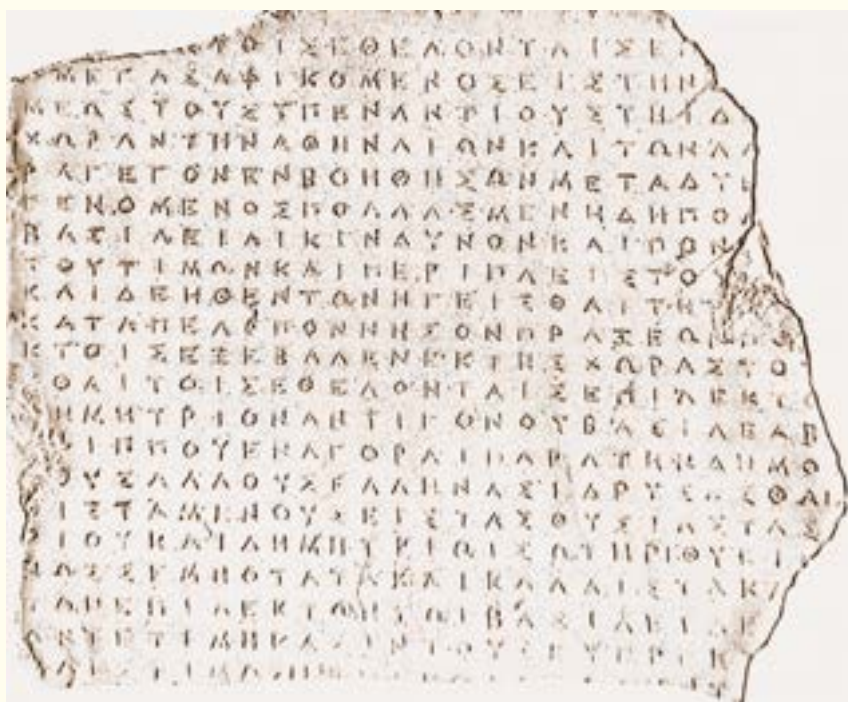 ΤΟΙΣΕΘΕΛΟΝΤΑΙΣΕ
ΜΕΓΑΣΑΦΙΚΟΜΕΝΟΣΕΙΣΤΗΝ
ΜΕΩΣΤΟΥΣΥΠΕΝΑΝΤΙΟΥΣΤΗΙΔ
ΧΩΡΑΝΤΗΝΑΘΗΝΑΙΩΝΚΑΙΤΩΝΑΛ
ΡΑΓΕΓΟΝΕΝΒΟΗΘΗΣΩΝΜΕΤΑΔΥ
ΓΕΝΟΜΕΝΟΣΠΟΛΛΑΣΜΕΝΗΔΗΠΟΛ
ΒΑΣΙΛΕΙΑΙΚΙΝΔΥΝΟΝΚΑΙΠΟΝ
ΤΟΥΤΙΜΩΝΚΑΙΠΕΡΙΠΛΕΙΣΤΟΥ
ΚΑΙΔΕΗΘΕΝΤΩΝΗΓΕΙΣΘΑΙΤΗ
ΚΑΤΑΠΕΛΟΠΟΝΝΗΣΟΝΠΡΑΞΕΩΝ
ΚΤΟΙΣΕΞΕΒΑΛΕΝΕΚΤΗΣΧΩΡΑΣΤΟ
ΘΑΙΤΟΙΣΕΘΕΛΟΝΤΑΙΣΕΠΙΛΕΚΤ
ΗΜΗΤΡΙΟΝΑΝΤΙΓΟΝΟΥΒΑΣΙΛΕΑΒ
ΙΠΠΟΥΕΝΑΓΟΡΑΙΠΑΡΑΤΗΝΔΗΜΟ
ΟΥΣΑΛΛΟΥΣΕΛΛΗΝΑΣΙΔΡΥΣΑΣΘΑΙ
ΙΣΤΑΜΕΝΟΥΣΕΙΣΤΑΣΘΥΣΙΑΣΤΑΣ
ΡΙΟΥΚΑΙΔΗΜΗΤΡΙΩΙΣΩΤΗΡΙΘΥΕΙ
ΝΩΣΣΕΜΝΟΤΑΤΑΚΑΙΚΑΛΛΙΣΤΑΚΑ
ΤΩΝΕΠΙΛΕΚΤΩΝΤΩΙΒΑΣΙΛΕΙΔΕ
ΝΤΕΤΙΜΗΚΑΣΙΝΤΟΥΣΕΥΕΡΓ